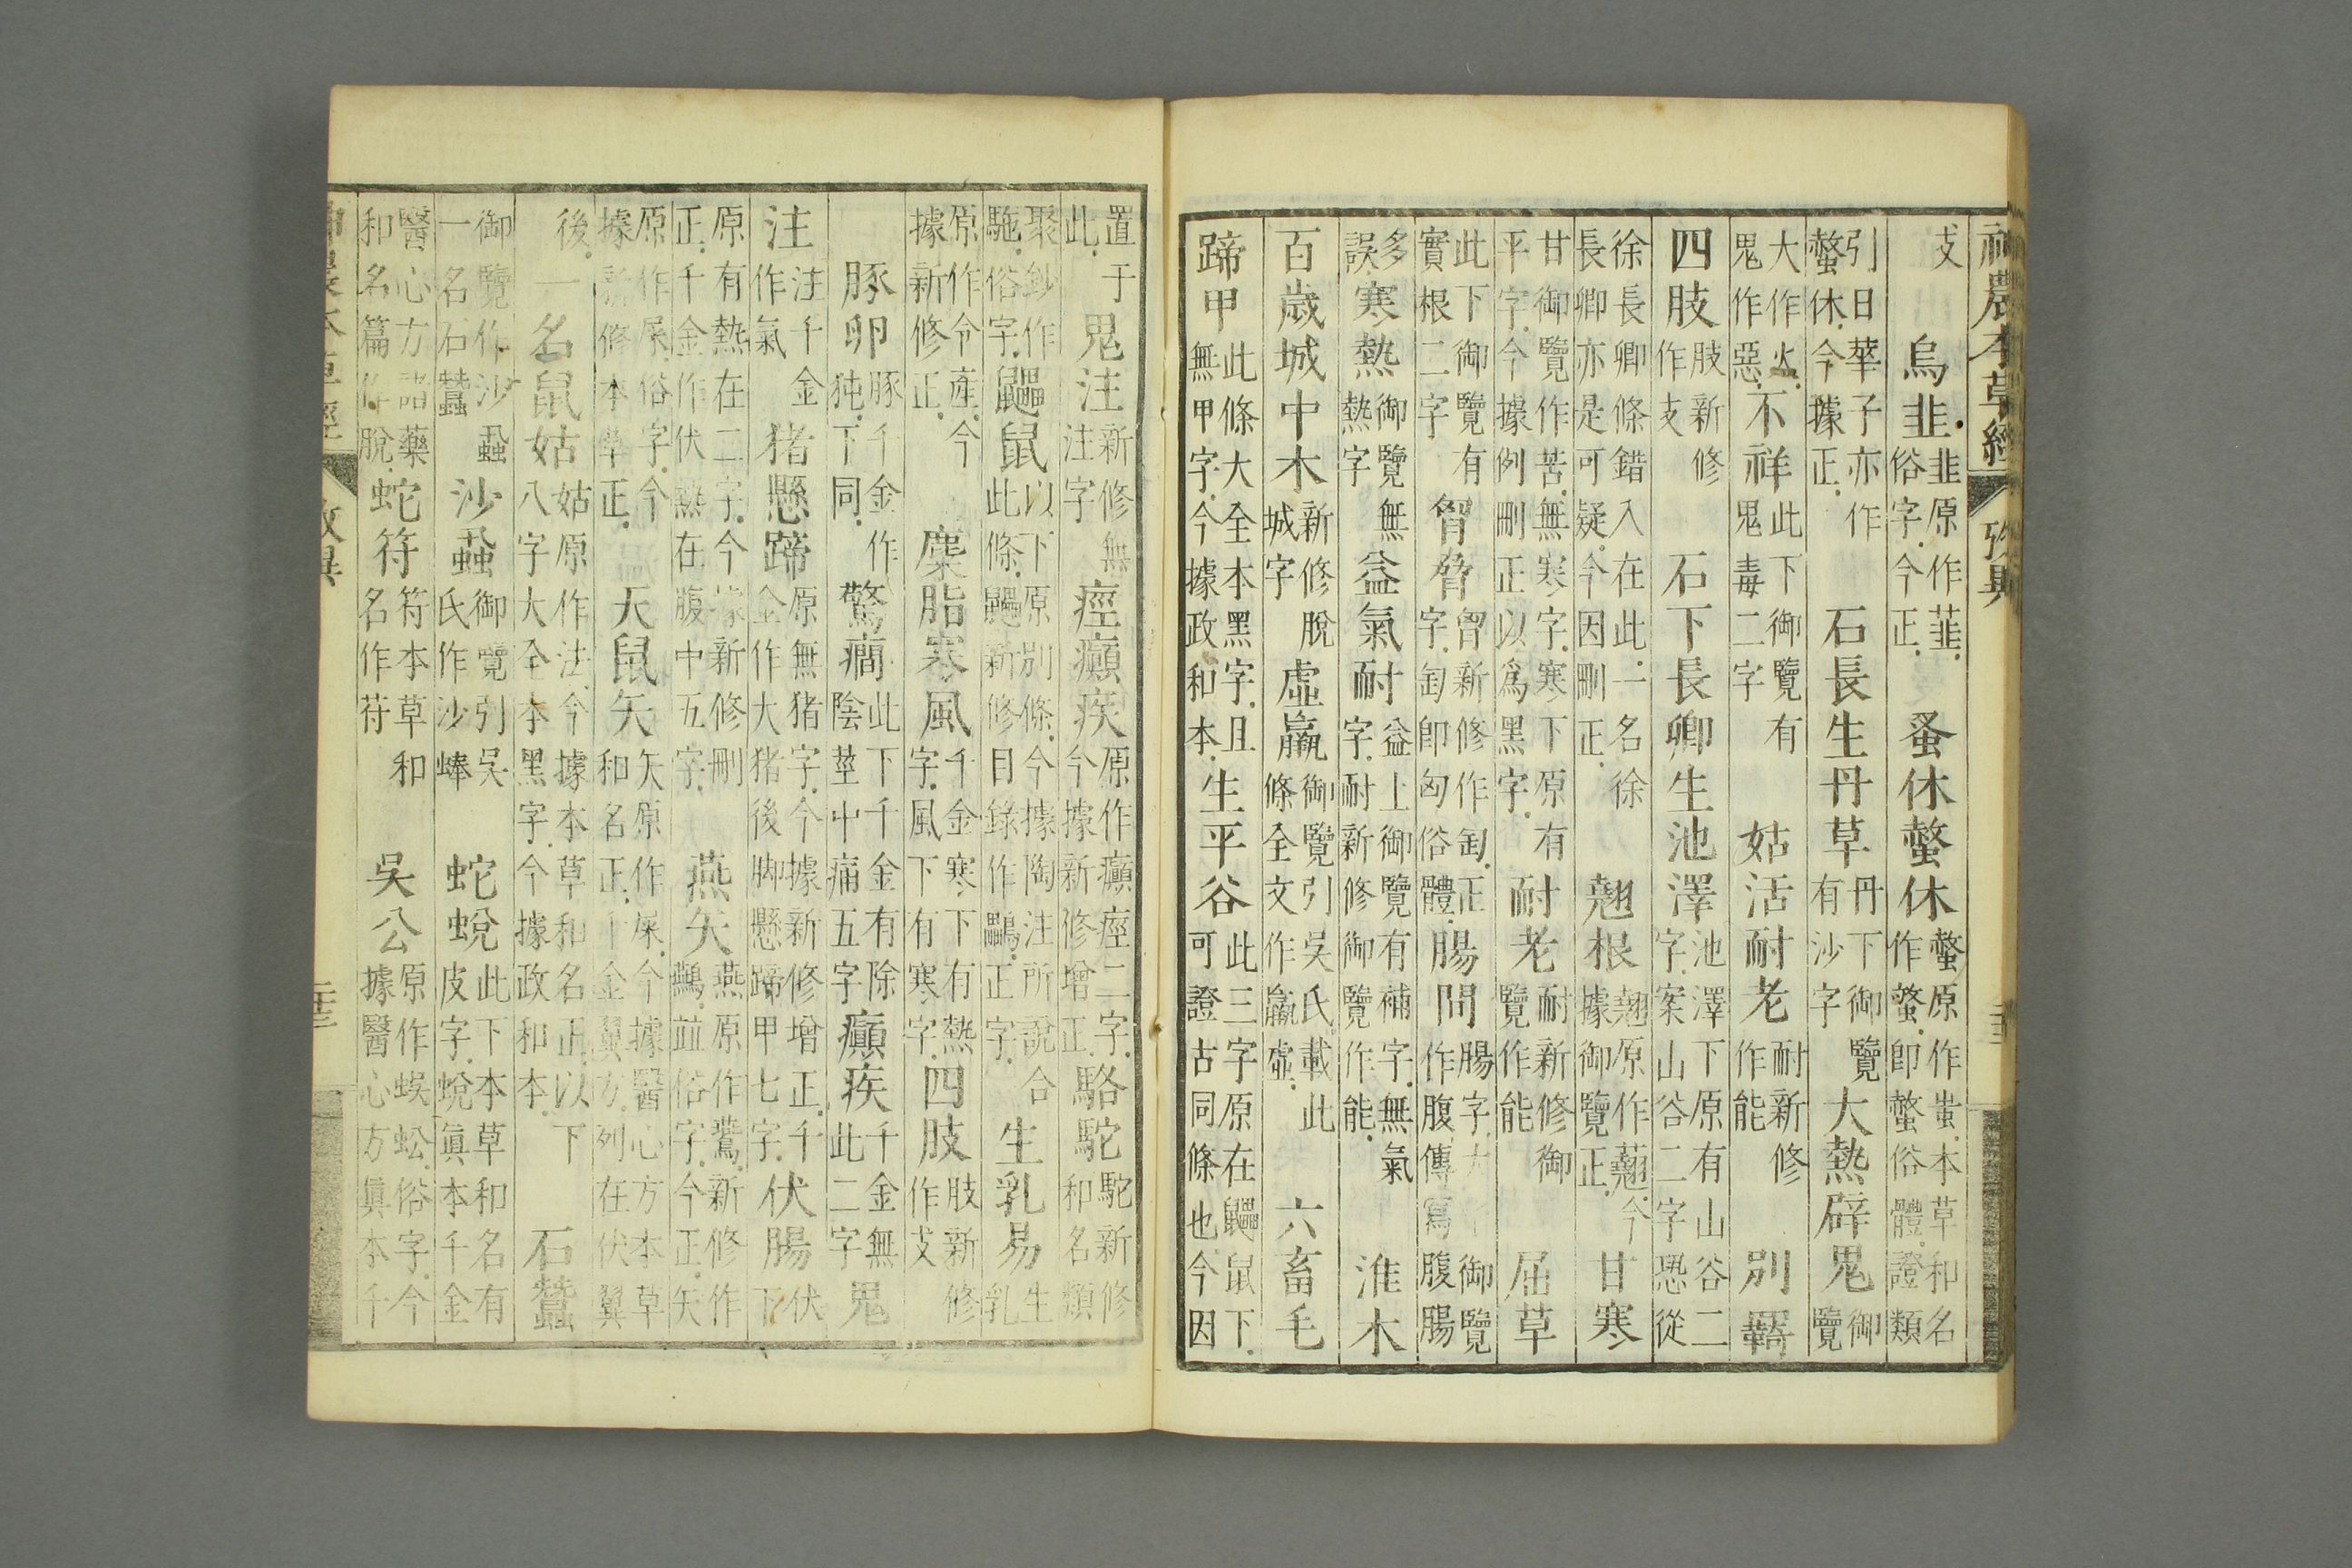 神農本草經 攷異
攴 烏韭韭原作韮俗字今正 蚤休螫休螫原作蚩本草和名作螯卽螫俗體證類
引日華子亦作螫休今據正 石長生丹草丹下御覽有沙字 大熱辟鬼御覽
大作火鬼作惡不祥此下御覽有鬼毒二字 姑活耐老耐新修作能 別羈
四肢肢新修作支 石下長卿生池澤池澤下原有山谷二字案山谷二字恐從
徐長卿條錯入在此一名徐長卿亦是可疑今因刪正 翹根翹原作藋今據御覽正 甘寒
甘御覽作苦無寒字寒下原有平字今據例刪正以爲黑字 耐老耐新修御覽作能 屈草
此下御覽有實根二字 胷脅胷新修作匈正字卽匈俗體腸間腸字大全御覽作腹傳寫腹腸
多誤寒熱御覽無熱字益氣耐益上御覽有補字無氣字耐新修御覽作能 淮木
百歲城中木新修脫城字 虛羸御覽引吳氏載此條全文作羸虛 六畜毛
蹄甲此條大全本黑字且無甲字今據政和本生平谷此三字原在鼺鼠下可證古同條也今因
置于此鬼注新修無注字 痙癲疾原作癲痙二字今據新修增正駱駝駝新修和名類
聚鈔作馳俗字鼺鼠此條以下原別條今據陶注所說合鼺新修目錄作鸓正字 生乳易生乳
原作令產今據新修正 麋脂寒風千金寒下有熱字風下有寒字四肢肢新修作支
豚卵豚千金作㹠下同 驚癎此下千金有除陰莖中痛五字癲疾千金無此二字 鬼
注注千金作氣豬懸蹄原無猪字今據新修增正千金作大猪後脚懸蹄甲七字伏腸伏下
原有熱在二字今據新修刪正千金作伏熱在腹中五字 燕矢燕原作鷰新修作鷰並俗字今正矢
原作屎俗字今據新修本草正 天鼠矢矢原作屎今據醫心方本草和名正千金翼方列在伏翼
後一名鼠姑姑原作法今據本草和名正以下八字大全本黑字今據政和本 石蠶
御覽作沙蝨一名石蠶 沙蝨御覽引吳氏作沙蜯 蛇蛻此下本草和名有皮字蛻眞本千金
醫心方諸藥和名篇作脫蛇符符本草和名作苻 吳公原作蜈蚣俗字今據醫心方眞本千